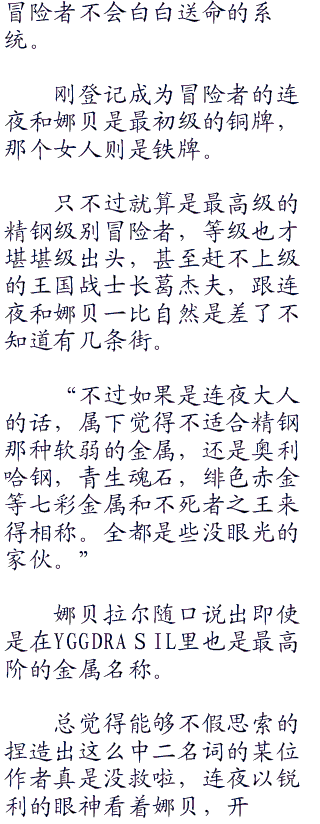 冒险者不会白白送命的系
统。
刚登记成为冒险者的连
夜和娜贝是最初级的铜牌，
那个女人则是铁牌。
只不过就算是最高级的
精钢级别冒险者，等级也才
堪堪级出头，甚至赶不上级
的王国战士长葛杰夫，跟连
夜和娜贝一比自然是差了不
知道有几条街。
“不过如果是连夜大人
的话，属下觉得不适合精钢
那种软弱的金属，还是奥利
哈钢，青生魂石，绯色赤金
等七彩金属和不死者之王来
得相称。全都是些没眼光的
家伙。”
娜贝拉尔随口说出即使
是在YGGDRASIL里也是最高
阶的金属名称。
总觉得能够不假思索的
捏造出这么中二名词的某位
作者真是没救啦，连夜以锐
利的眼神看着娜贝，开